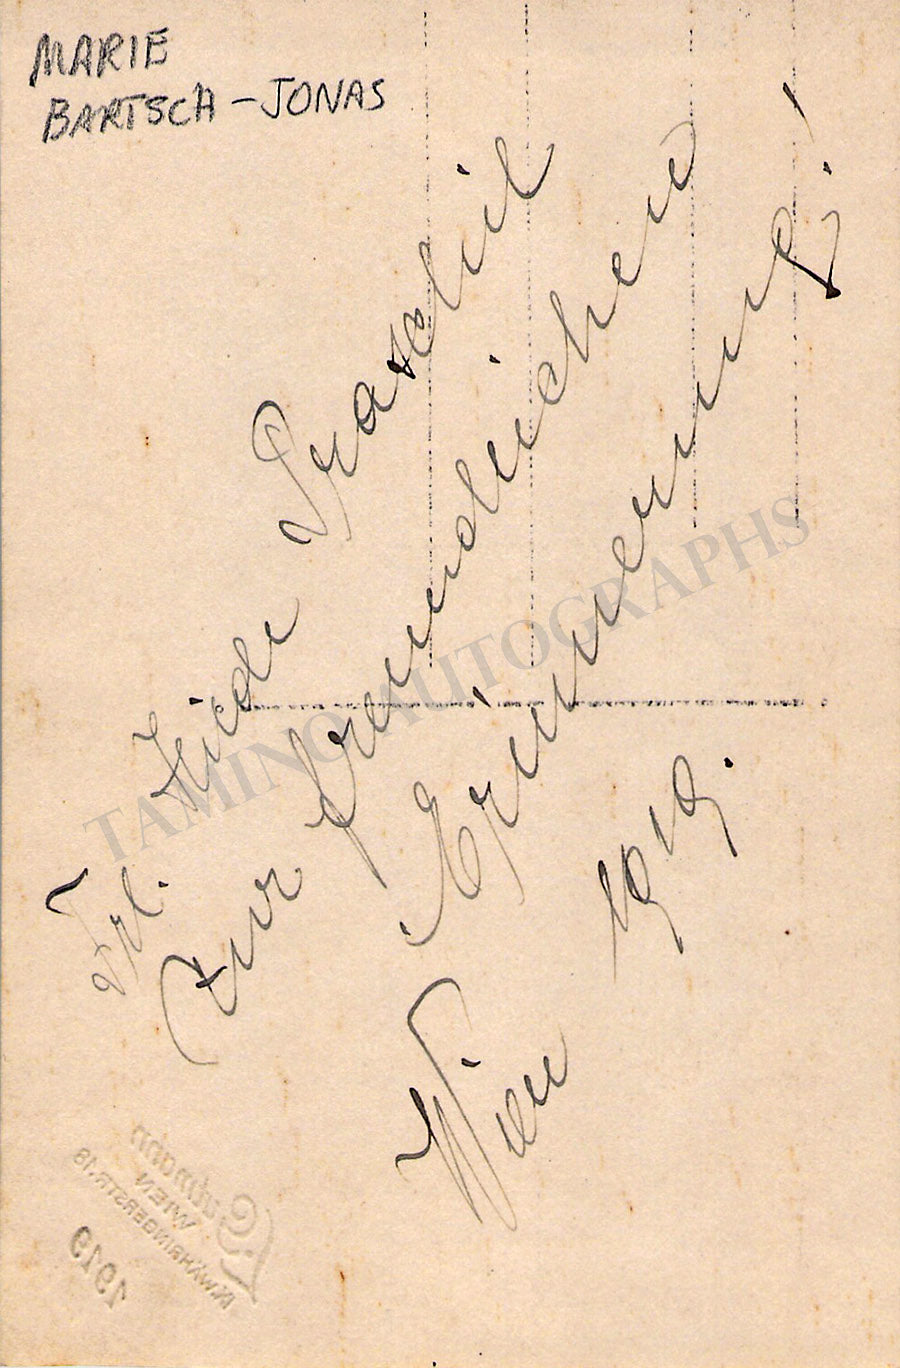 MARIE
BARTSCH-JONAS
Frl. Hide Praschil
zur freundlichen
Erinnerung!
Wien 1919.
TAMINO AUTOGRAPHS
Gutmann
WIEN
WÄHRINGERSTR. 18
1919